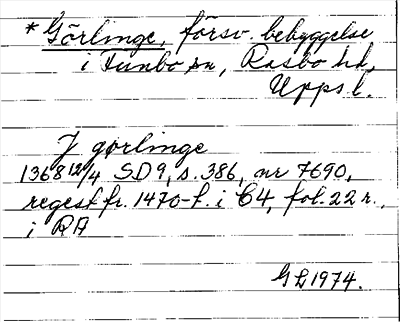 *Görlinge, försv. bebyggelse
i Funbo sn, Rasbo hd,
Upps. l.
J gørlinge
1368 12/4 SD 9, s. 386, nr 7690,
regest fr. 1470-t. i C4, fol. 22 r.,
i RA
GL 1974.